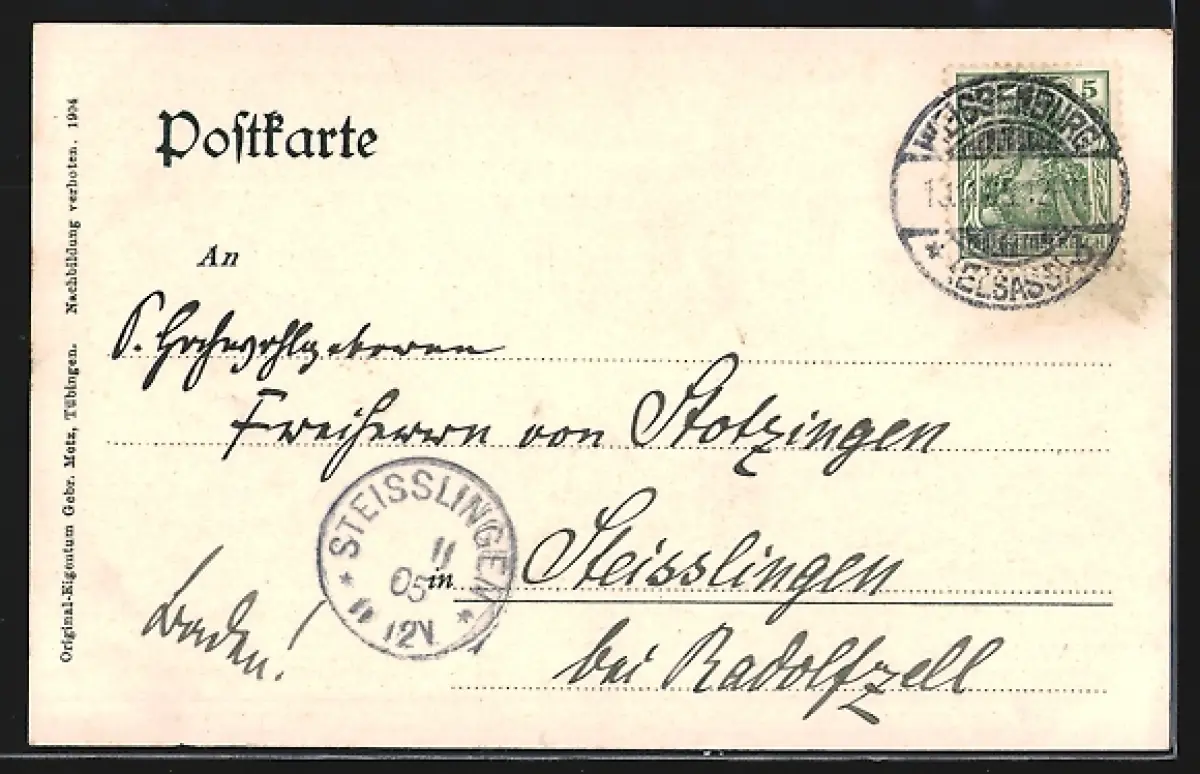 Postkarte
5
WEISSENBURG
* (ELSASS) b
An
S. Hochwohlgeboren
Freiherrn von Stotzingen
STEISSLINGEN
11
05
12V.
in Steisslingen
Baden!
bei Radolfzell
Original-Eigentum Gebr. Metz, Tübingen. Nachbildung verboten. 1904